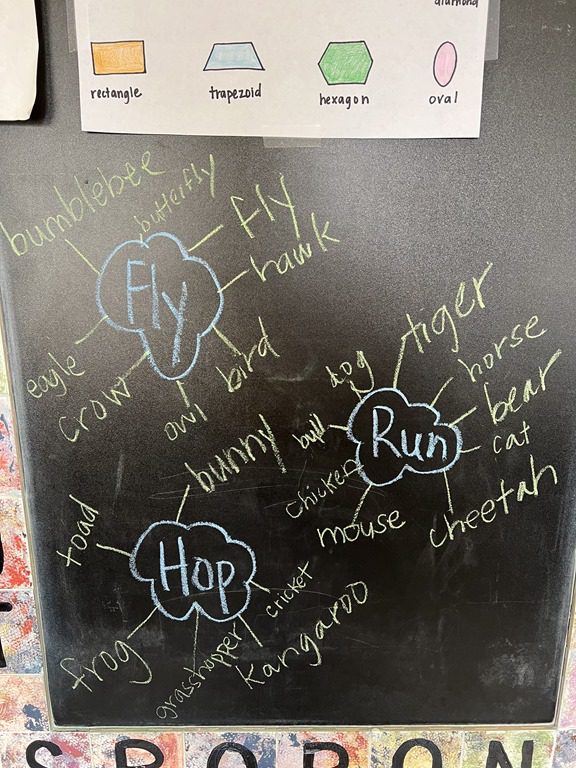 diamond
rectangle
trapezoid
hexagon
oval
bumblebee
butterfly
fly
hawk
Fly
eagle
crow
owl
bird
tiger
dog
horse
bear
bull
Run
cat
chicken
mouse
cheetah
bunny
toad
Hop
cricket
frog
grasshopper
kangaroo